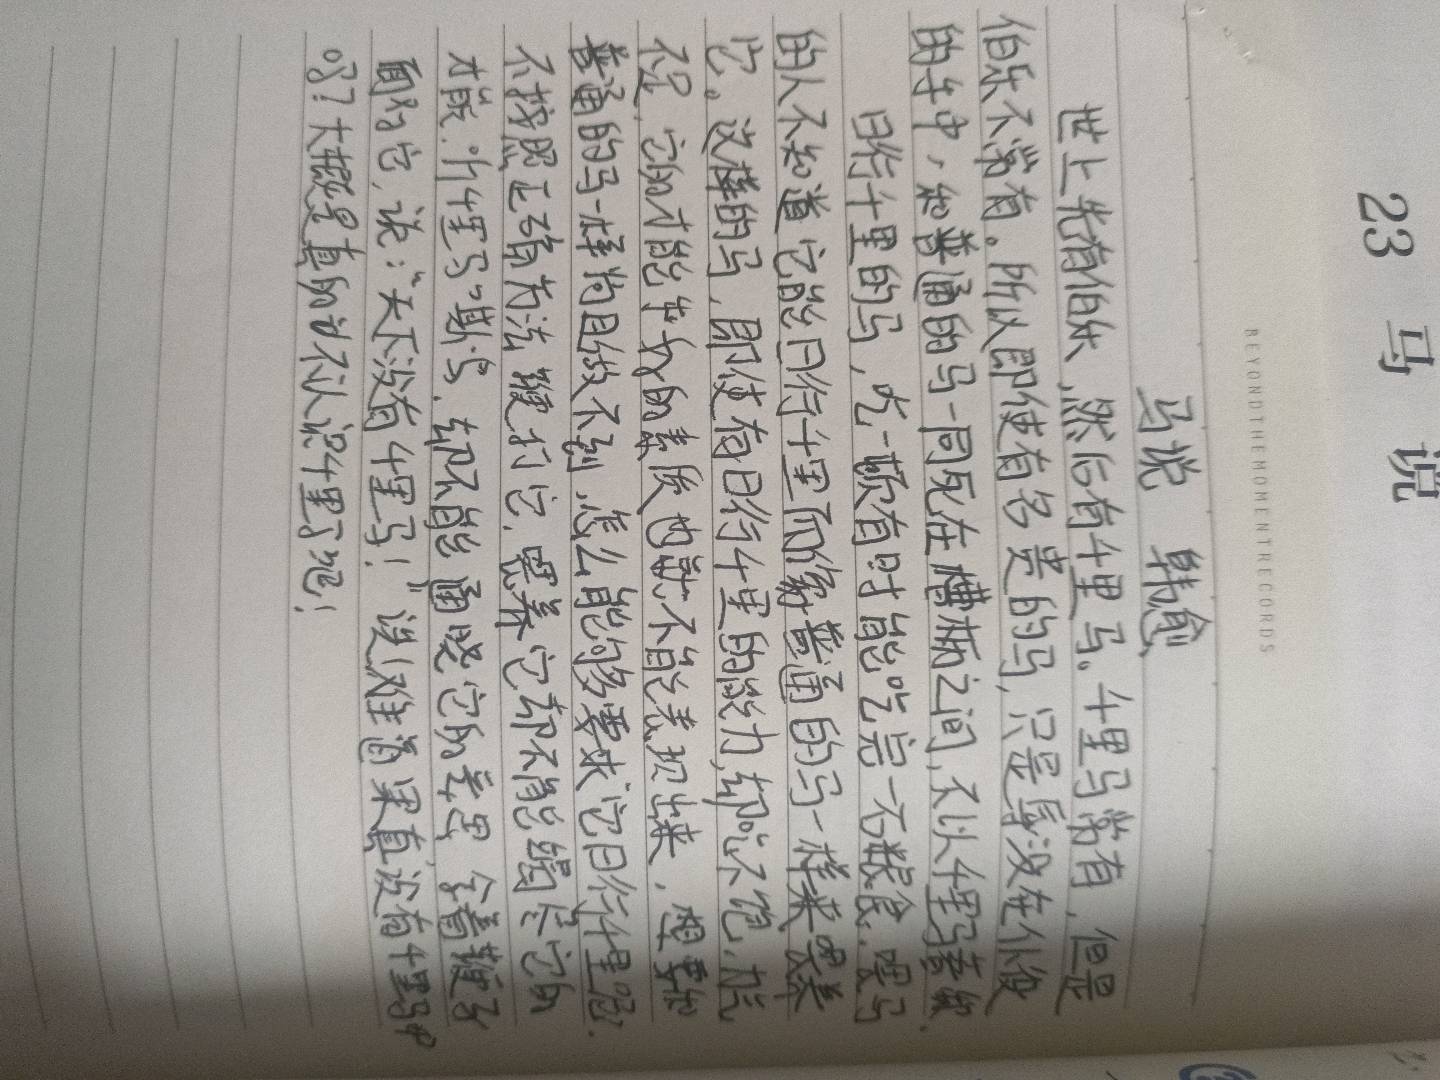 23 马说
BEYONDTHEMOMENTRECORDS
马说 韩愈
世上先有伯乐,然后有千里马。千里马常有,但是
伯乐不常有。所以即使有名贵的马,只是辱没在仆役
的手中,和普通的马一同死在槽枥之间,不以千里马著称.
日行千里的马,吃一顿有时能吃完一石粮食.喂马
的人不知道它能日行千里而像普通的马一样来喂养
它。这样的马,即使有日行千里的能力,却吃不饱,力气
不足,它的才能 的素质也就不能表现出来.想要和
普通的马一样尚且做不到,怎么能够要求它日行千里呢.
不按照正确方法鞭打它,喂养它却不能竭尽它的
才能.听千里马嘶鸣,却不能通晓它的意思 拿着鞭子
面对它,说:“天下没有千里马!”误难道果真没有千里马
吗?大概是真的 不认识千里马吧!